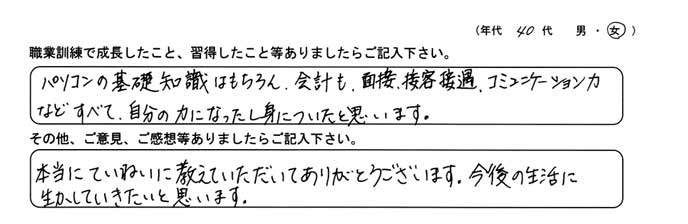 (年代 40 代　男 ・ 女 )
職業訓練で成長したこと、習得したこと等ありましたらご記入下さい。
パソコンの基礎知識はもちろん、会計も、面接、接客接遇、コミュニケーション力
などすべて、自分の力になったし身についたと思います。
その他、ご意見、ご感想等ありましたらご記入下さい。
本当にていねいに教えていただいてありがとうございます。今後の生活に
生かしていきたいと思います。